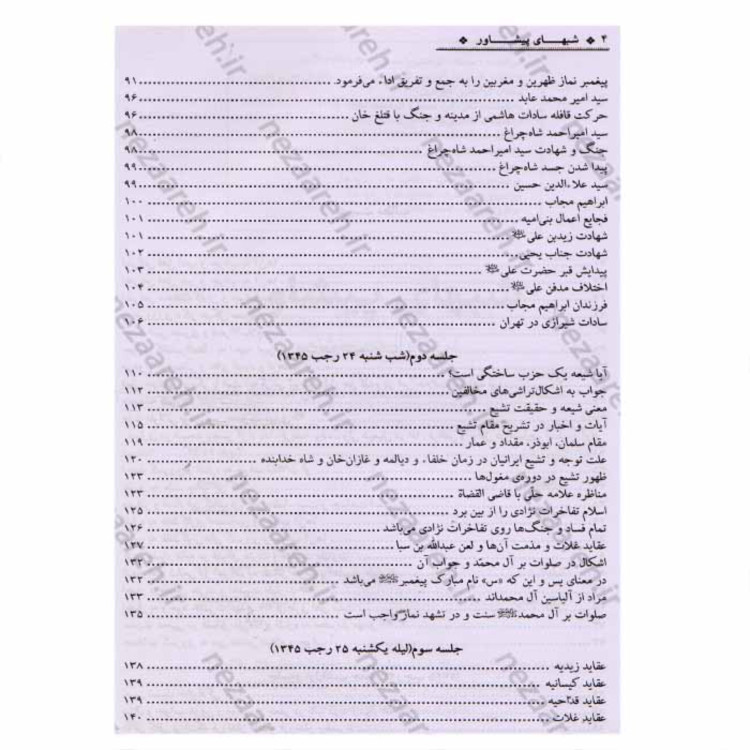 ۴ ❖ شبهـــای پیشـــاور ❖
پیغمبر نماز ظهرین و مغربین را به جمع و تفریق ادا، می‌فرمود ........ ۹۱
سید امیر محمد عابد ........ ۹۶
حرکت قافله سادات هاشمی از مدینه و جنگ با قتلغ خان ........ ۹۶
سید امیراحمد شاه‌چراغ ........ ۹۸
جنگ و شهادت سید امیراحمد شاه‌چراغ ........ ۹۸
پیدا شدن جسد شاه‌چراغ ........ ۹۹
سید علاءالدین حسین ........ ۹۹
ابراهیم مجاب ........ ۱۰۰
فجایع اعمال بنی‌امیه ........ ۱۰۱
شهادت زیدبن علی ........ ۱۰۱
شهادت جناب یحیی ........ ۱۰۲
پیدایش قبر حضرت علی ........ ۱۰۳
اختلاف مدفن علی ........ ۱۰۴
فرزندان ابراهیم مجاب ........ ۱۰۵
سادات شیرازی در تهران ........ ۱۰۶
جلسه دوم(شب شنبه ۲۴ رجب ۱۳۴۵)
آیا شیعه یک حزب ساختگی است؟ ........ ۱۱۰
جواب به اشکال‌تراشی‌های مخالفین ........ ۱۱۲
معنی شیعه و حقیقت تشیع ........ ۱۱۳
آیات و اخبار در تشریح مقام تشیع ........ ۱۱۵
مقام سلمان، ابوذر، مقداد و عمار ........ ۱۱۹
علت توجه و تشیع ایرانیان در زمان خلفا، و دیالمه و غازان‌خان و شاه خدابنده ........ ۱۲۰
ظهور تشیع در دوره‌ی مغول‌ها ........ ۱۲۳
مناظره علامه حلّی با قاضی القضاة ........ ۱۲۳
اسلام تفاخرات نژادی را از بین برد ........ ۱۲۵
تمام فساد و جنگ‌ها روی تفاخرات نژادی می‌باشد ........ ۱۲۶
عقاید غلات و مذمت آن‌ها و لعن عبدالله بن سبا ........ ۱۲۷
اشکال در صلوات بر آل محمّد و جواب آن ........ ۱۳۲
در معنای یس و این که «س» نام مبارک پیغمبر می‌باشد ........ ۱۳۲
مراد از آلیاسین آل محمداند ........ ۱۳۳
صلوات بر آل محمد سنت و در تشهد نماز واجب است ........ ۱۳۵
جلسه سوم(لیله یکشنبه ۲۵ رجب ۱۳۴۵)
عقاید زیدیه ........ ۱۳۸
عقاید کیسانیه ........ ۱۳۹
عقاید قدّاحیه ........ ۱۳۹
عقاید غلات ........ ۱۴۰
nezaareh.ir